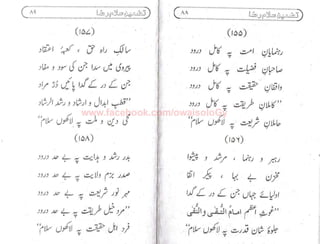 تضمین سلام رضا ۸۸
(۱۵۵)
رہنمایانِ امت پہ کامل درود
صاحبانِ فضیلت پہ کامل درود
واقفانِ حقیقت پہ کامل درود
"کاملانِ طریقت پہ کامل درود
حاملانِ شریعت پہ لاکھوں سلام"
(۱۵۶)
رہبر و رہنما، مرشد و پیشوا
مخزنِ بے بہا، پیکرِ اتقا
اولیائے جہاں جن کے در کے گدا
"غوثِ اعظم امامُ التُّقٰی والنُّقٰی
جلوۂ شانِ قدرت پہ لاکھوں سلام"
تضمین سلام رضا ۸۹
(۱۵۷)
سالکِ راہِ حق، کعبۂ اعتقاد
پیروی میں سدا جن کی سود و مفاد
جن کے در کے گدا پائیں دُرِّ مراد
"قطبِ ابدال و ارشاد و رشدُ الرشاد
محیِ دین و ملت پہ لاکھوں سلام"
(۱۵۸)
بدرِ رشد و ہدایت پہ بے حد درود
صدرِ بزمِ ولایت پہ بے حد درود
مہرِ نورِ شریعت پہ بے حد درود
"مردِ خیلِ طریقت پہ بے حد درود
فردِ اہلِ حقیقت پہ لاکھوں سلام"
www.facebook.com/owaisoloGy